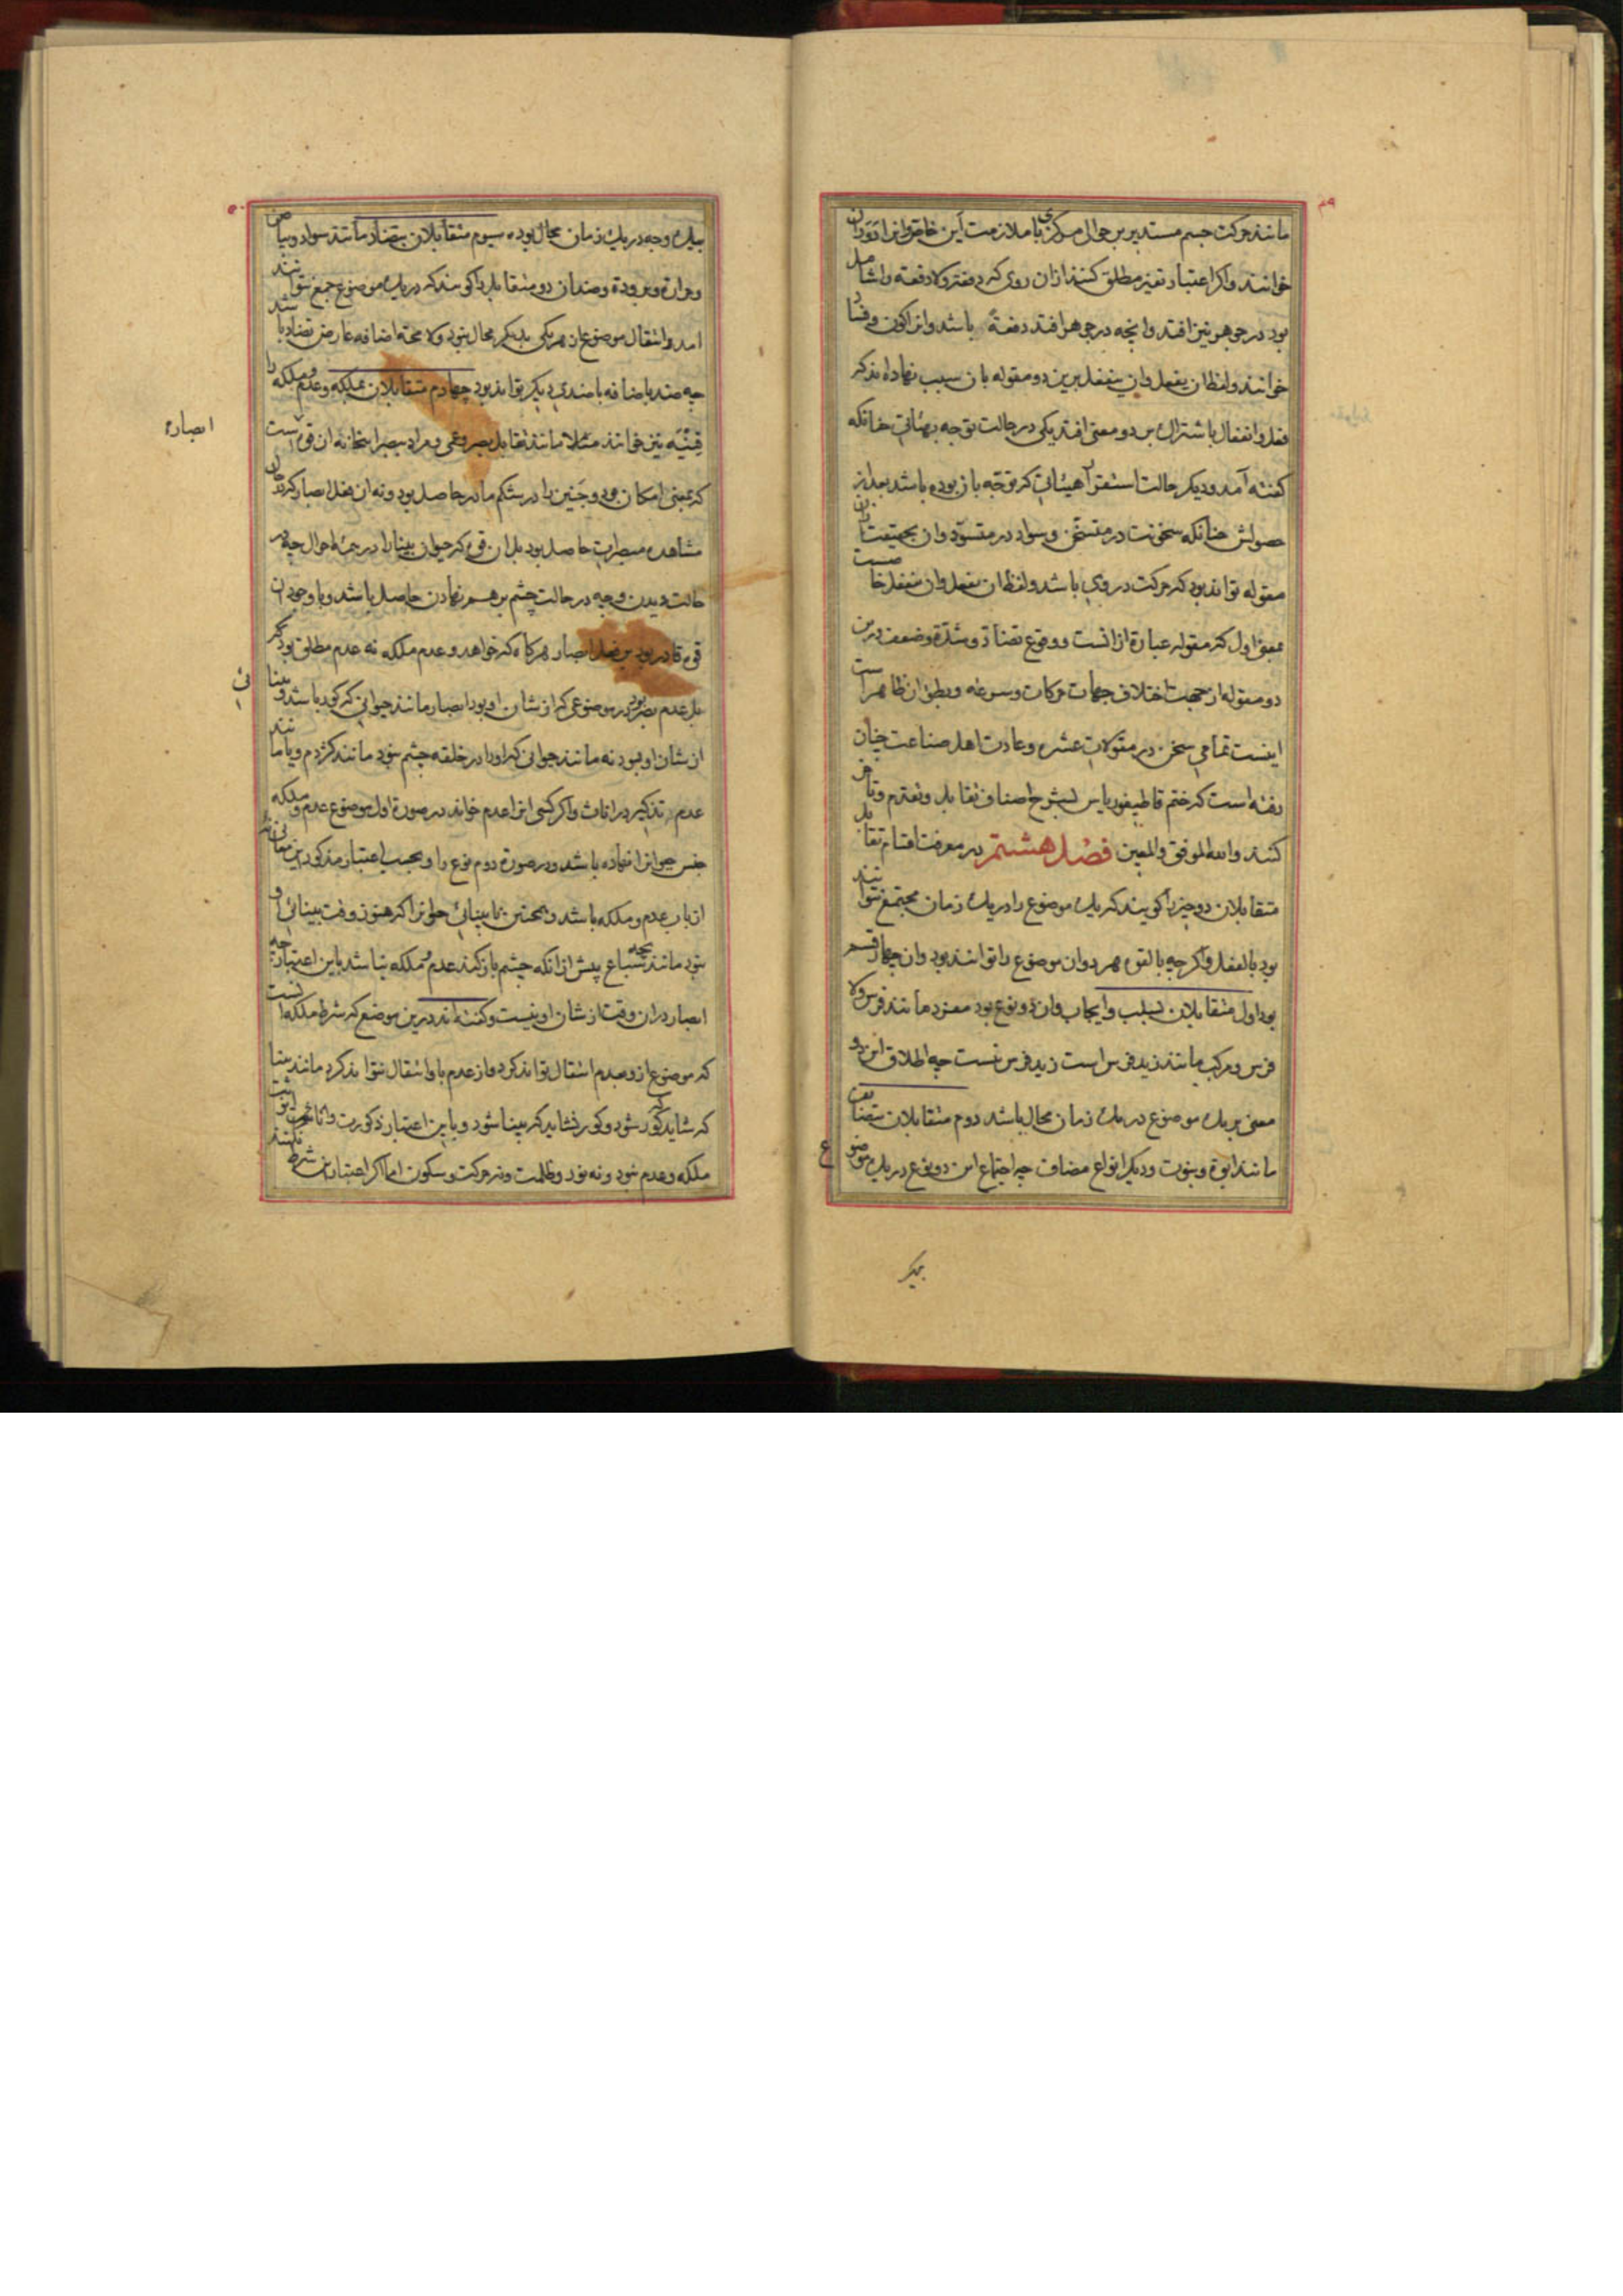 ۴۹
مانند حرکت جسم مستدیر بر حوالی مرکزی با ملازمت این خاصه و انرا دوران
خوانند و اکر اعتبار تغیر مطلق کنند از ان روی که دفعة و لا دفعه را شامل
بود در جوهر نیز افتد و انچه در جوهر افتد دفعةً باشد و انرا کون و فساد
خوانند و لفظ ان یفعل و ان ینفعل برین دو مقوله بان سبب نهاده اند که
فعل و انفعال باشتراک بر دو معنی افتد یکی در حالت توجه بهیئاتی چنانکه
کفته آمد و دیکر حالت استقرار هیئاتی که توجه باز بوده باشد بعد از
حصولش چنانکه سخونت در متسخن و سواد در متسوّد و ان بحقیقت ازان
مقوله تواند بود که حرکت در وی باشد و لفظ ان یفعل و ان ینفعل خاصست
بمعنی اول که مقوله عبارة ازانست و وقوع تضاد و شدّة و ضعف درین
دو مقوله از جهت اختلاف جهات حرکات و سرعه و بطؤ ان ظاهر است
اینست تمامی سخن در مقولات عشره و عادت اهل صناعت چنان
رفته است که ختم قاطیغوریاس بشرح اصناف تقابل و تقدم و تاخر
کنند والله الموفق والمعین فصل هشتم در معرفت اقسام تقابل
متقابلان دو چیز را کویند که یک موضوع را در یک زمان مجتمع نتوانند
بود بالفعل و اکر چه بالقوه هر دو ان موضوع را توانند بود و ان چهار قسم
بود اول متقابلان بسلب و ایجاب و ان دو نوع بود مفرد مانند فرس و لا
فرس و مرکب مانند زید فرس است زید فرس نیست چه اطلاق این دو
معنی بر یک موضوع در یک زمان محال باشد دوم متقابلان بتضایف
مانند ابوة و بنوت و دیکر انواع مضاف چه اجتماع این دو نوع در یک موضوع
۵۰
بیک وجه در یک زمان محال بوده سیوم متقابلان بتضاد مانند سواد و بیاض
و حرارة و برودة و ضدان دو متقابل را کویند که در یک موضوع جمع نتوانند
امد و انتقال موضوع از هر یکی بدیکر محال نبود و لا محة اضافه عارض تضاد باشد
چه ضد باضافه با ضدی دیکر تواند بود چهارم متقابلان بملکه و عدم و ملکه را
قنیّه نیز خوانند مثلا مانند تقابل بصر و عمی و مراد ببصر اینجا نه ان قوتست
که بمعنی امکان بود و جنین را در شکم مادر حاصل بود و نه ان فعل ابصار که در حال
مشاهده مبصرات حاصل بود بل ان قوه که حیوان بینا را در همه احوال چه در
حالت دیدن و چه در حالت چشم بر هم نهادن حاصل باشد و با وجود ان
قوه قادر بود بر فعل ابصار هرکاه که خواهد و عدم ملکه نه عدم مطلق بود که
بل عدم بصر بود در موضوعی که از شان او بود ابصار مانند حیوانی که کور باشد و بینائی
از شان او بود نه مانند حیوانی که او را در خلقه چشم نبود مانند کژدم و یا مانند
عدم تذکیر در اناث و اکر کسی انرا عدم خواند در صورة اول موضوع عدم و ملکه
جنس حیوانرا نهاده باشد و در صورة دوم نوع را و بحسب اعتبار مذکور این معانی نه
از باب عدم و ملکه باشد و همچنین نا بینائی حیوانرا که هنوز وقت بینائی او
نبود مانند بچه سباع پیش از انکه چشم باز کند عدم و ملکه نباشد باین اعتبار چه
ابصار در ان وقت از شان او نیست و کفته اند درین موضع که شرط ملکه انست
که موضوع ازو بعدم انتقال تواند کرد و از عدم باو انتقال نتواند کرد مانند بینا
که شاید که کور شود و کور نشاید که بینا شود و باین اعتبار ذکورت و انوثت
ملکه و عدم نبود و نه نور و ظلمت و نه حرکت و سکون اما اکر اعتبار این شرط نکنند
ابصاره
بیک